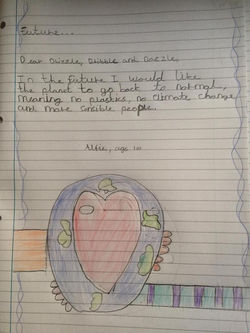 Future...
Dear Drizzle, Dribble and Dazzle,
In the future I would like
the planet to go back to normal,
meaning no plastics, no climate change
and make sensible people.
Alfie, age 10